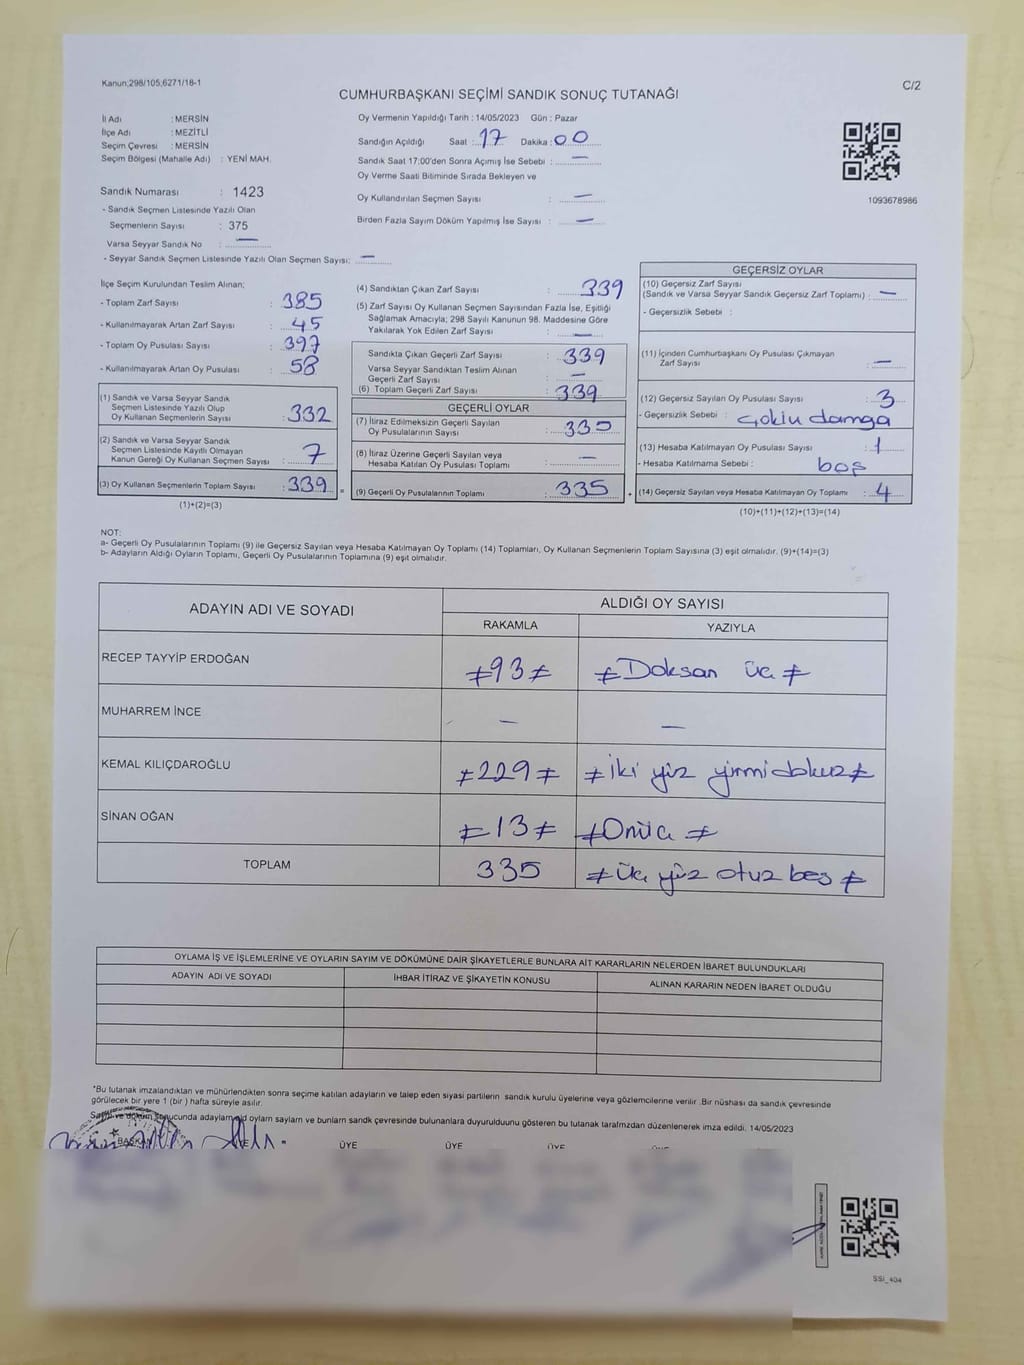 Kanun;298/105;6271/18-1
C/2
CUMHURBAŞKANI SEÇİMİ SANDIK SONUÇ TUTANAĞI
İl Adı : MERSİN
İlçe Adı : MEZİTLİ
Seçim Çevresi : MERSİN
Seçim Bölgesi (Mahalle Adı) : YENİ MAH.
Sandık Numarası : 1423
- Sandık Seçmen Listesinde Yazılı Olan
Seçmenlerin Sayısı : 375
Varsa Seyyar Sandık No : —
- Seyyar Sandık Seçmen Listesinde Yazılı Olan Seçmen Sayısı: —
Oy Vermenin Yapıldığı Tarih : 14/05/2023 Gün : Pazar
Sandığın Açıldığı Saat : 17 Dakika : 00
Sandık Saat 17:00'den Sonra Açımış İse Sebebi : —
Oy Verme Saati Bitiminde Sırada Bekleyen ve
Oy Kullandırılan Seçmen Sayısı : —
Birden Fazla Sayım Döküm Yapılmış İse Sayısı : —
1093678986
İlçe Seçim Kurulundan Teslim Alınan;
- Toplam Zarf Sayısı : 385
- Kullanılmayarak Artan Zarf Sayısı : 45
- Toplam Oy Pusulası Sayısı : 397
- Kullanılmayarak Artan Oy Pusulası : 58
(1) Sandık ve Varsa Seyyar Sandık
Seçmen Listesinde Yazılı Olup
Oy Kullanan Seçmenlerin Sayısı : 332
(2) Sandık ve Varsa Seyyar Sandık
Seçmen Listesinde Kayıtlı Olmayan
Kanun Gereği Oy Kullanan Seçmen Sayısı : 7
(3) Oy Kullanan Seçmenlerin Toplam Sayısı : 339
(1)+(2)=(3)
(4) Sandıktan Çıkan Zarf Sayısı : 339
(5) Zarf Sayısı Oy Kullanan Seçmen Sayısından Fazla İse, Eşitliği
Sağlamak Amacıyla; 298 Sayılı Kanunun 98. Maddesine Göre
Yakılarak Yok Edilen Zarf Sayısı : —
Sandıkta Çıkan Geçerli Zarf Sayısı : 339
Varsa Seyyar Sandıktan Teslim Alınan
Geçerli Zarf Sayısı : —
(6) Toplam Geçerli Zarf Sayısı : 339
GEÇERLİ OYLAR
(7) İtiraz Edilmeksizin Geçerli Sayılan
Oy Pusulalarının Sayısı : 335
(8) İtiraz Üzerine Geçerli Sayılan veya
Hesaba Katılan Oy Pusulası Toplamı : —
= (9) Geçerli Oy Pusulalarının Toplamı : 335 +
GEÇERSİZ OYLAR
(10) Geçersiz Zarf Sayısı
(Sandık ve Varsa Seyyar Sandık Geçersiz Zarf Toplamı) : —
- Geçersizlik Sebebi :
(11) İçinden Cumhurbaşkanı Oy Pusulası Çıkmayan
Zarf Sayısı : —
(12) Geçersiz Sayılan Oy Pusulası Sayısı : 3
- Geçersizlik Sebebi : Çoklu damga
(13) Hesaba Katılmayan Oy Pusulası Sayısı : 1
- Hesaba Katılmama Sebebi : boş
(14) Geçersiz Sayılan veya Hesaba Katılmayan Oy Toplamı : 4
(10)+(11)+(12)+(13)=(14)
NOT:
a- Geçerli Oy Pusulalarının Toplamı (9) ile Geçersiz Sayılan veya Hesaba Katılmayan Oy Toplamı (14) Toplamları, Oy Kullanan Seçmenlerin Toplam Sayısına (3) eşit olmalıdır. (9)+(14)=(3)
b- Adayların Aldığı Oyların Toplamı, Geçerli Oy Pusulalarının Toplamına (9) eşit olmalıdır.
ADAYIN ADI VE SOYADI
ALDIĞI OY SAYISI
RAKAMLA YAZIYLA
RECEP TAYYİP ERDOĞAN ≠93≠ ≠Doksan üç≠
MUHARREM İNCE — —
KEMAL KILIÇDAROĞLU ≠229≠ ≠İki yüz yirmi dokuz≠
SİNAN OĞAN ≠13≠ ≠Onüç≠
TOPLAM 335 ≠Üç yüz otuz beş≠
OYLAMA İŞ VE İŞLEMLERİNE VE OYLARIN SAYIM VE DÖKÜMÜNE DAİR ŞİKAYETLERLE BUNLARA AİT KARARLARIN NELERDEN İBARET BULUNDUKLARI
ADAYIN ADI VE SOYADI İHBAR İTİRAZ VE ŞİKAYETİN KONUSU ALINAN KARARIN NEDEN İBARET OLDUĞU
*Bu tutanak imzalandıktan ve mühürlendikten sonra seçime katılan adayların ve talep eden siyasi partilerin sandık kurulu üyelerine veya gözlemcilerine verilir .Bir nüshası da sandık çevresinde
görülecek bir yere 1 (bir ) hafta süreyle asılır.
Sayım ve döküm sonucunda adayların oyların sayların ve bunların sandık çevresinde bulunanlara duyurulduunu gösteren bu tutanak tarafmzdan düzenlenerek imza edildi. 14/05/2023
BAŞKAN ÜYE ÜYE ÜYE
SSI_404